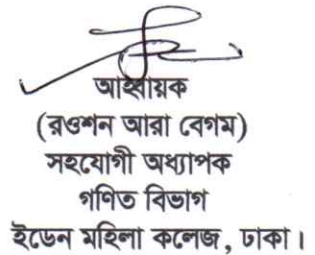 আহ্বায়ক
(রওশন আরা বেগম)
সহযোগী অধ্যাপক
গণিত বিভাগ
ইডেন মহিলা কলেজ, ঢাকা।